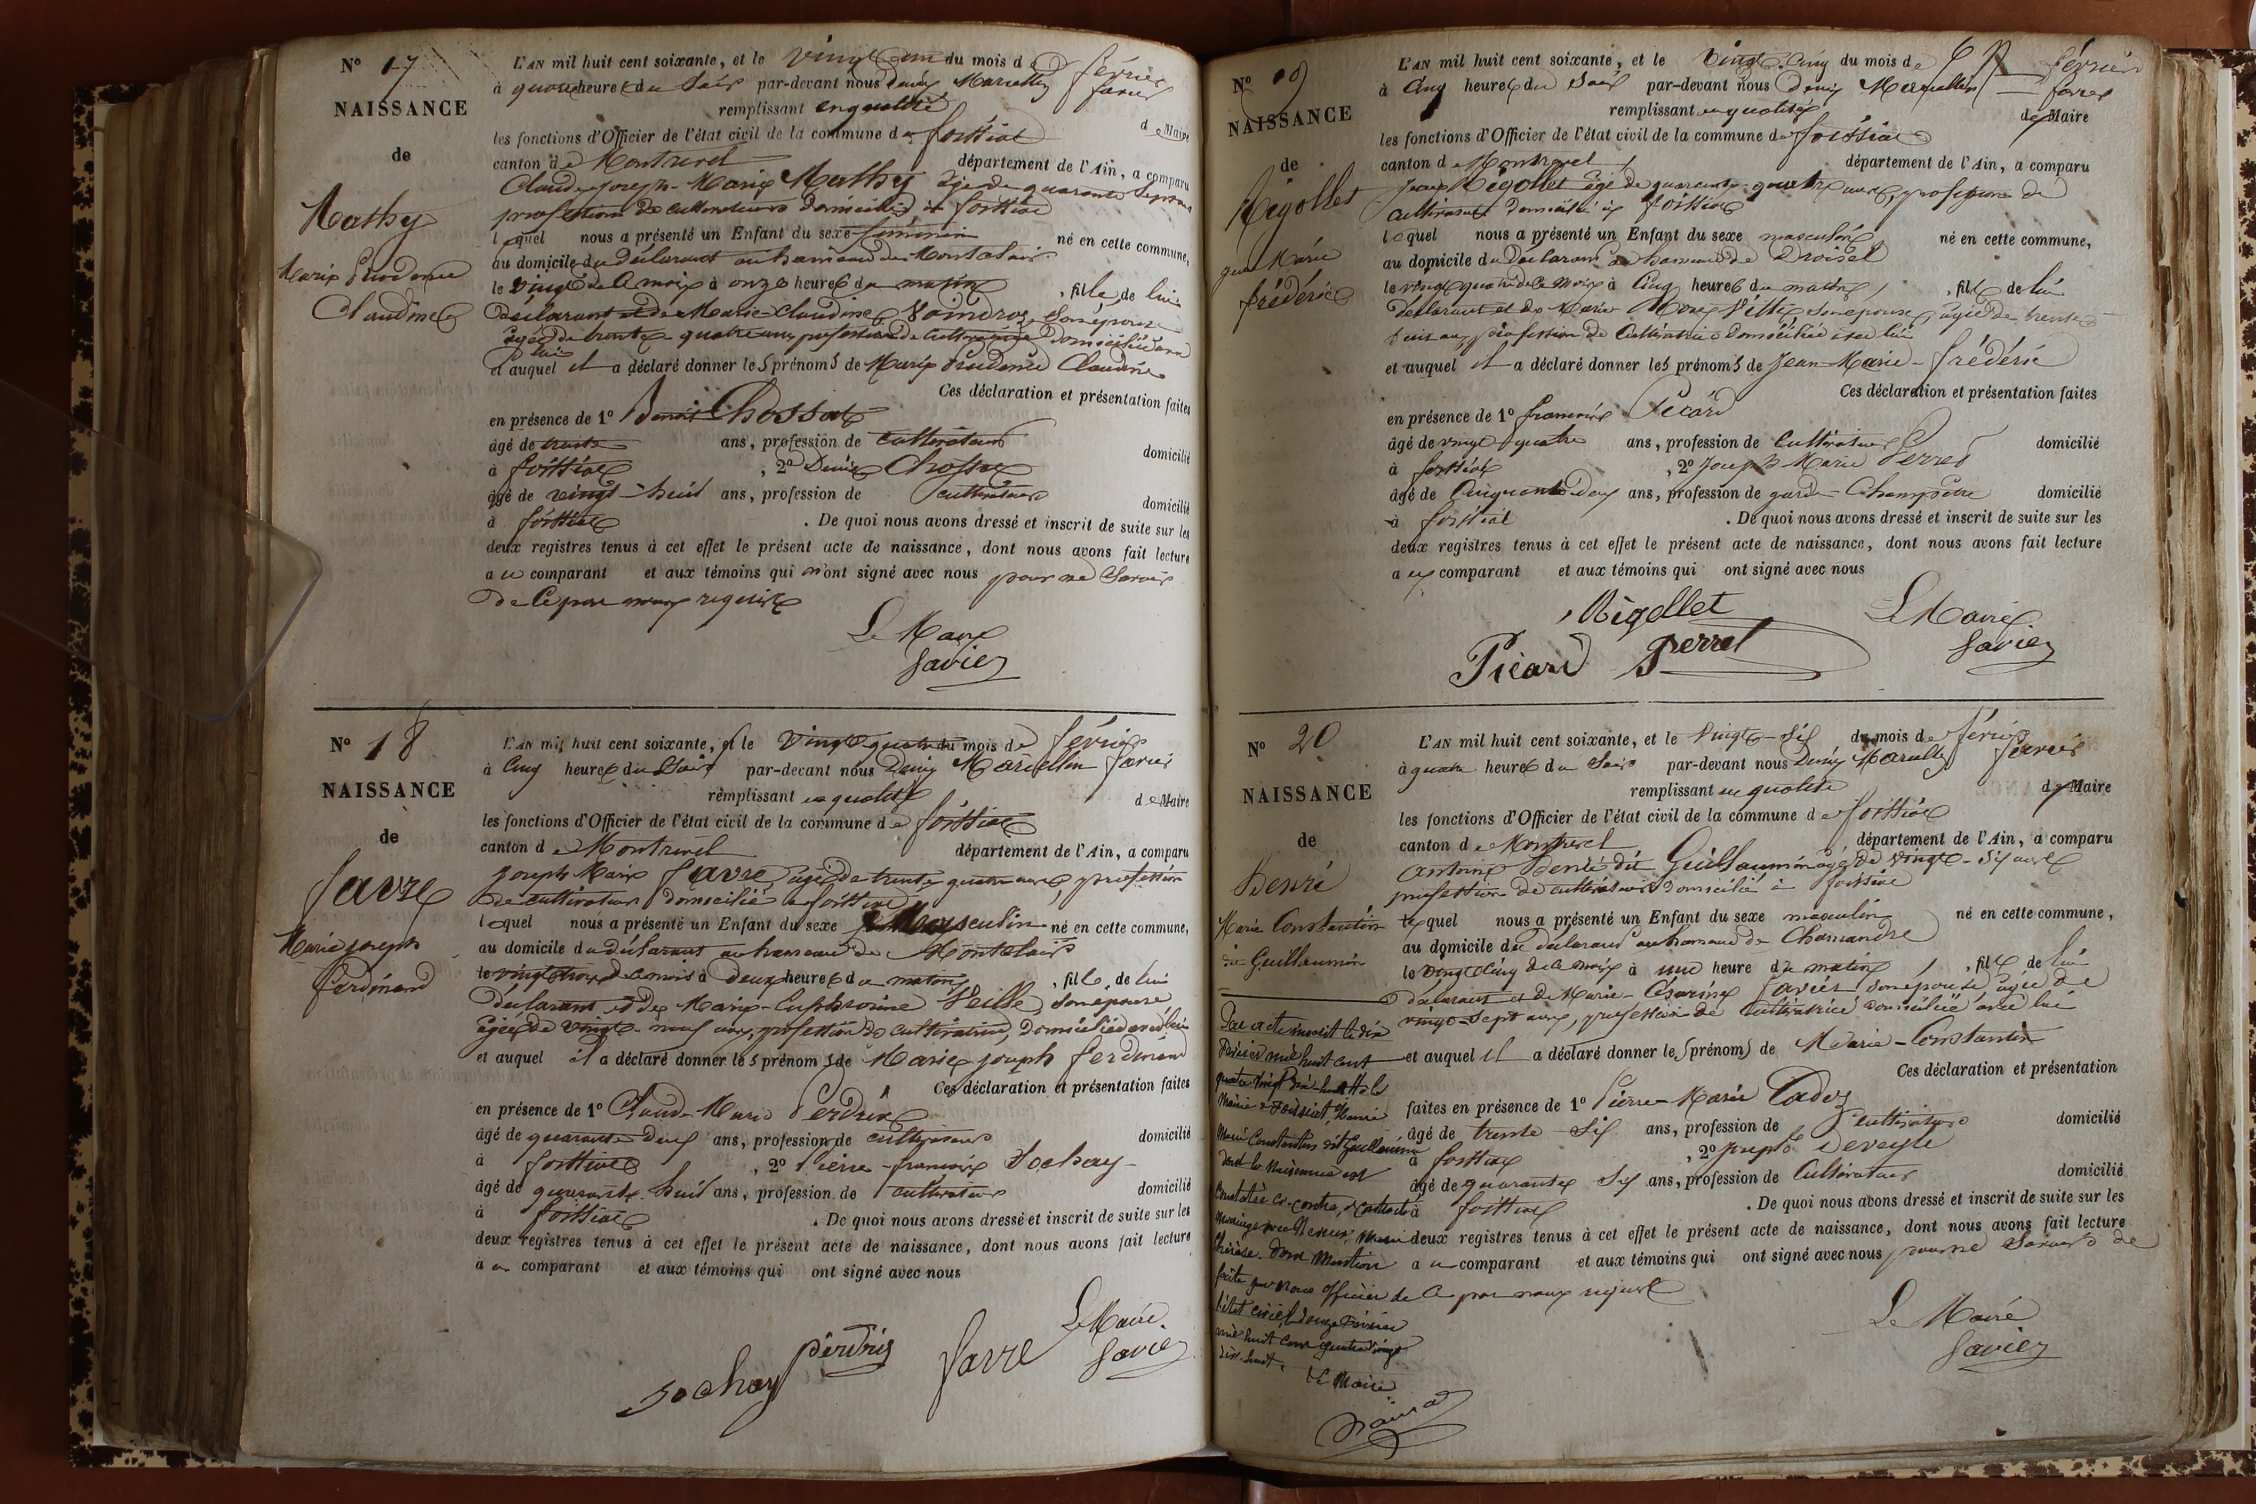 N° 17
NAISSANCE
de
Mathy
Marie Prudence
Claudine
L'AN mil huit cent soixante, et le vingt un du mois de février
à quatre heures du Soir par-devant nous Denis Marcellin favier
remplissant en qualité de Maire
les fonctions d'Officier de l'état civil de la commune de foissiat
canton de Montrevel département de l'Ain, a comparu
Claude Joseph-Marie Mathy âgé de quarante sept ans
profession de cultivateur domicilié à foissiat
lequel nous a présenté un Enfant du sexe féminin né en cette commune,
au domicile du déclarant au hameau de Montalais
le vingt de ce mois à onze heures du matin, fille de lui
déclarant et de Marie-Claudine son épouse
âgée de trente quatre ans profession de cultivatrice domiciliée avec
lui
et auquel il a déclaré donner les prénoms de Marie Prudence Claudine
Ces déclaration et présentation faites
en présence de 1° Benoit Chossat
âgé de trente ans, profession de cultivateur domicilié
à foissiat, 2° Denis Chossat
âgé de vingt-huit ans, profession de cultivateur domicilié
à foissiat. De quoi nous avons dressé et inscrit de suite sur les
deux registres tenus à cet effet le présent acte de naissance, dont nous avons fait lecture
au comparant et aux témoins qui n'ont signé avec nous pour ne Savoir
de ce par nous requis
Le Maire
favier
N° 18
NAISSANCE
de
favre
Marie joseph
ferdinand
L'AN mil huit cent soixante, et le vingt-quatre du mois de février
à Cinq heures du Soir par-devant nous Denis Marcellin favier
remplissant en qualité de Maire
les fonctions d'Officier de l'état civil de la commune de foissiat
canton de Montrevel département de l'Ain, a comparu
joseph Marie favre, âgé de trente quatre ans, profession
de cultivateur domicilié à foissiat
lequel nous a présenté un Enfant du sexe Masculin né en cette commune,
au domicile du déclarant au hameau de Montalais
le vingt trois de ce mois à deux heures du matin, fils de lui
déclarant et de Marie-Euphrosine Veille son épouse
âgée de vingt-neuf ans, profession de cultivatrice, domiciliée avec lui
et auquel il a déclaré donner les prénoms de Marie joseph ferdinand
Ces déclaration et présentation faites
en présence de 1° Claude-Marie Perdrix
âgé de quarante-deux ans, profession de cultivateur domicilié
à foissiat, 2° Pierre-françois Sochay
âgé de quarante huit ans, profession de cultivateur domicilié
à foissiat. De quoi nous avons dressé et inscrit de suite sur les
deux registres tenus à cet effet le présent acte de naissance, dont nous avons fait lecture
au comparant et aux témoins qui ont signé avec nous
Le Maire
sochay perdrix favre favier
N° 19
NAISSANCE
de
Rigollet
jean Marie
frédéric
L'AN mil huit cent soixante, et le vingt-cinq du mois de février
à Cinq heures du Soir par-devant nous Denis Marcellin favier
remplissant en qualité de Maire
les fonctions d'Officier de l'état civil de la commune de foissiat
canton de Montrevel département de l'Ain, a comparu
Rigollet âgé de quarante-quatre ans, profession de
cultivateur domicilié à foissiat
lequel nous a présenté un Enfant du sexe masculin né en cette commune,
au domicile du déclarant au hameau de Droisel
le vingt quatre de ce mois à Cinq heures du matin, fils de lui
déclarant et de Marie son épouse, âgée de trente
ans profession de Cultivatrice domiciliée avec lui
et auquel il a déclaré donner les prénoms de Jean-Marie-frédéric
Ces déclaration et présentation faites
en présence de 1° françois Picard
âgé de vingt quatre ans, profession de Cultivateur domicilié
à foissiat, 2° Joseph-Marie Perret
âgé de Cinquante deux ans, profession de garde-Champêtre domicilié
à foissiat. De quoi nous avons dressé et inscrit de suite sur les
deux registres tenus à cet effet le présent acte de naissance, dont nous avons fait lecture
aux comparant et aux témoins qui ont signé avec nous
Rigollet Le Maire
Picard Perret favier
N° 20
NAISSANCE
de
Henri
Marie Constantin
dit Guillaumin
L'AN mil huit cent soixante, et le Vingt-Six du mois de février
à quatre heures du Soir par-devant nous Denis Marcellin favier
remplissant en qualité de Maire
les fonctions d'Officier de l'état civil de la commune de foissiat
canton de Montrevel département de l'Ain, a comparu
antoine dit Guillaumin âgé de vingt-Six ans
profession de cultivateur domicilié à foissiat
lequel nous a présenté un Enfant du sexe masculin né en cette commune,
au domicile du déclarant au hameau de Chamandre
le vingt Cinq de ce mois à une heure du matin, fils de lui
déclarant et de Marie-Césarine favier son épouse âgée de
vingt-sept ans, profession de Cultivatrice domiciliée avec lui
et auquel il a déclaré donner les prénoms de Marie-Constantin
Ces déclaration et présentation
faites en présence de 1° Pierre-Marie Cadoz
âgé de trente Six ans, profession de cultivateur domicilié
à foissiat, 2° joseph Deveyle
âgé de quarante Six ans, profession de Cultivateur domicilié
à foissiat. De quoi nous avons dressé et inscrit de suite sur les
deux registres tenus à cet effet le présent acte de naissance, dont nous avons fait lecture
au comparant et aux témoins qui ont signé avec nous pour ne Savoir de
ce par nous requis
Le Maire
favier
Par acte inscrit le dix
février mil huit cent
quatre vingt dix-huit à la
Mairie de Foissiat, Henri
Marie Constantin dit Guillaumin
dont la naissance est
constatée ci-contre, a contracté
Mariage avec
Thérèse. Dont Mention
faite par nous officier de
l'état civil, le douze février
mil huit cent quatre vingt
dix-huit.
Le Maire